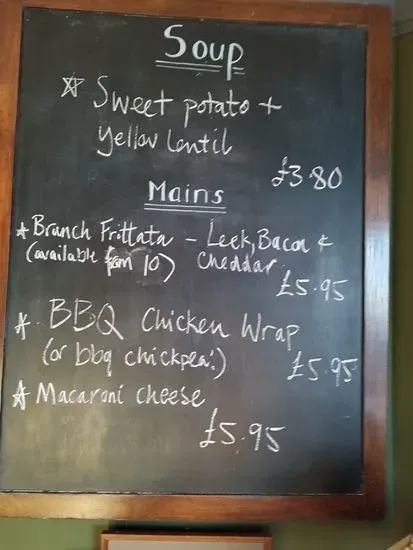 Soup
☆ Sweet potato +
yellow Lentil
£3.80
Mains
☆ Branch Frittata - Leek, Bacon &
(available from 10) Cheddar
£5.95
☆ BBQ Chicken Wrap
(or bbq chickpea!) £5.95
☆ Macaroni cheese
£5.95